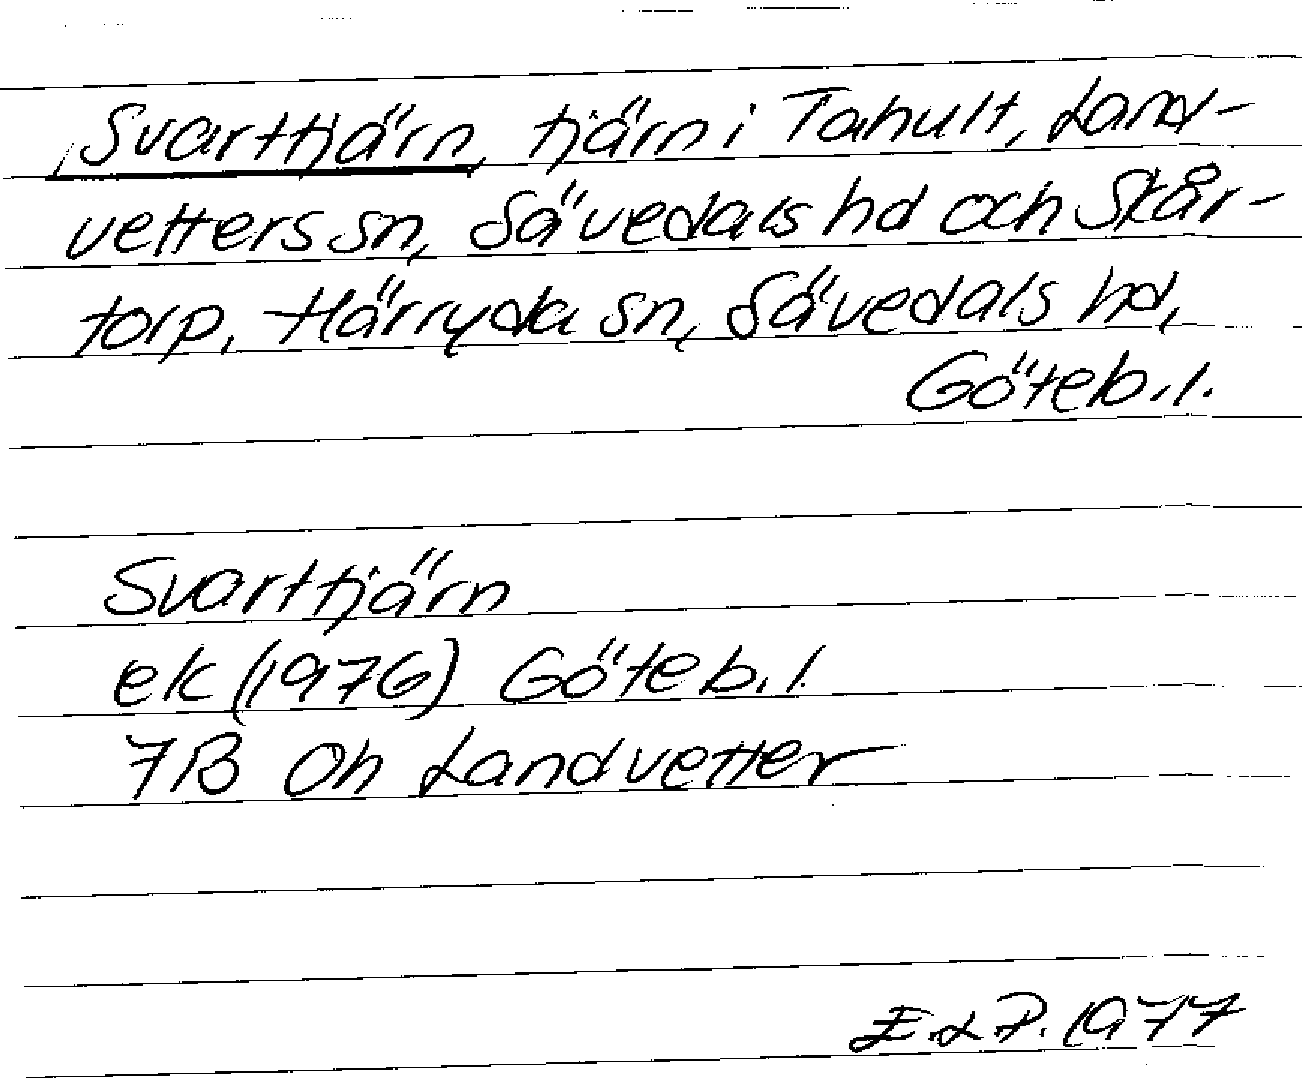 Svarttjärn, tjärn i Tahult, Land-
vetters sn, Sävedals hd och Skår-
torp, Härryda sn, Sävedals hd,
Göteb. l.
Svarttjärn
ek (1976) Göteb. l.
7B Oh Landvetter
E.L.P. 1977